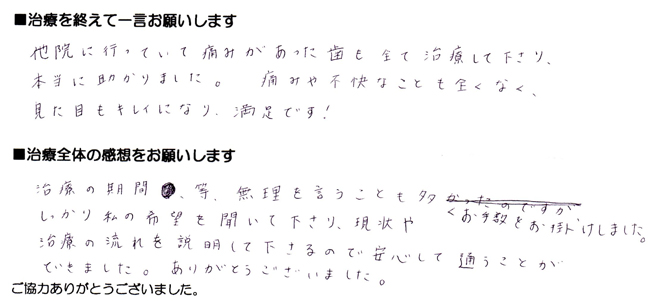 ■治療を終えて一言お願いします
他院に行っていて痛みがあった歯も全て治療して下さり、
本当に助かりました。 痛みや不快なことも全くなく、
見た目もキレイになり、満足です!
■治療全体の感想をお願いします
治療の期間、等、無理を言うことも多かったのですが
くお手数をお掛けしました。
しっかり私の希望を聞いて下さり、現状や
治療の流れを説明して下さるので安心して通うことが
できました。ありがとうございました。
ご協力ありがとうございました。